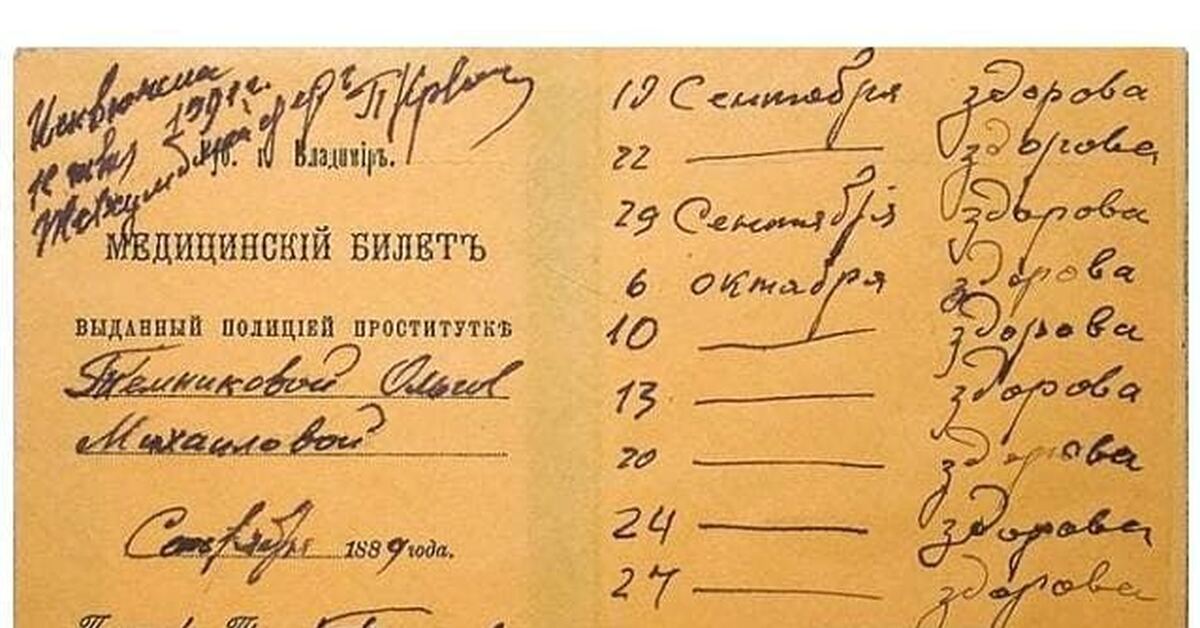 1891 г.
Губ. г. Владиміръ.
МЕДИЦИНСКІЙ БИЛЕТЪ
ВЫДАННЫЙ ПОЛИЦІЕЙ ПРОСТИТУТКѢ
Темниковой Ольгѣ
Михаиловой
Сентября 1889 года.
19 Сентября здорова
22 — здорова
29 Сентября здорова
6 октября здорова
10 — здорова
13 — здорова
20 — здорова
24 — здорова
27 — здорова